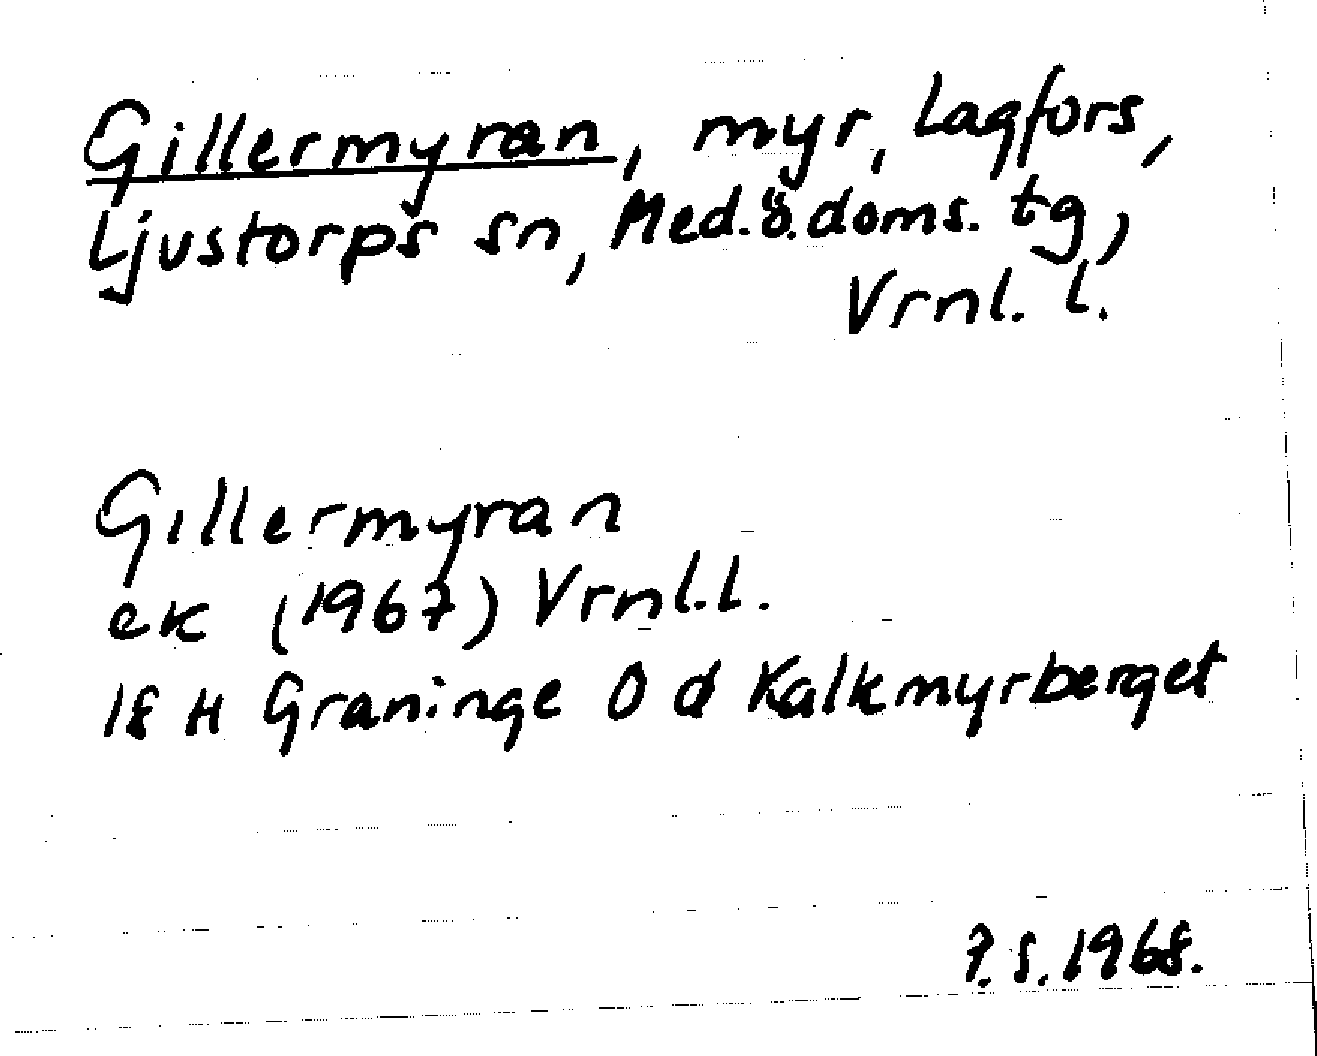 Gillermyran, myr, Lagfors,
Ljustorps sn, Med.ö.doms. tg,
Vrnl. l.
Gillermyran
ek (1967) Vrnl.l.
18 H Graninge O d Kalkmyrberget
P.S. 1968.